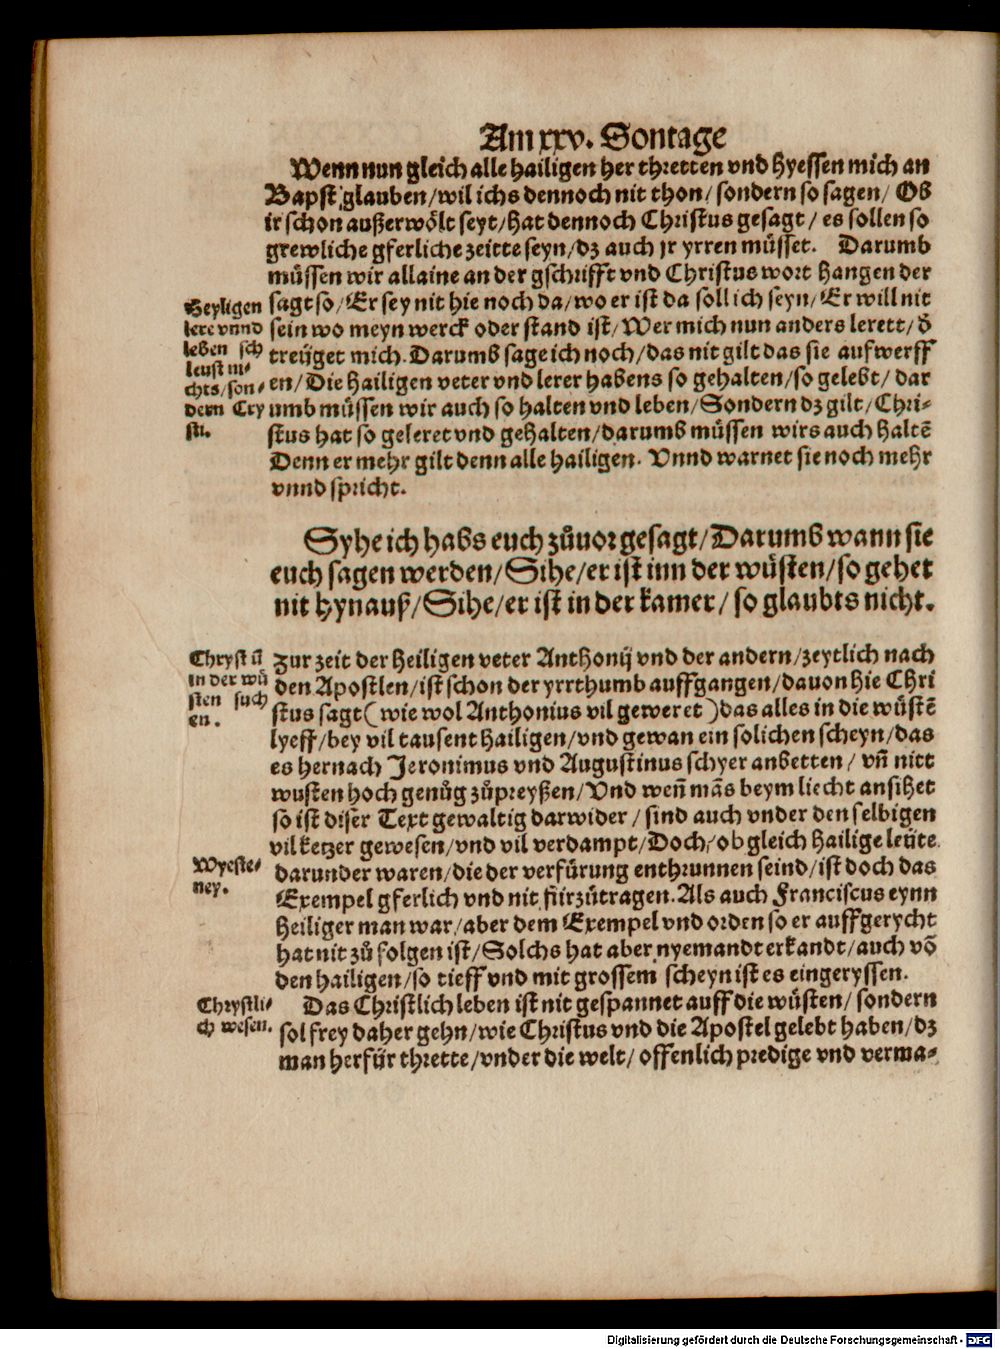 Am xxv. Sontage
Wenn nun gleich alle hailigen her thretten vnd hyessen mich an
Bapst glauben/wil ichs dennoch nit thon/sondern so sagen/ Ob
ir schon außerwölt seyt/hat dennoch Christus gesagt/es sollen so
grewliche gferliche zeitte seyn/dz auch jr yrren müsset. Darumb
müssen wir allaine an der gschrifft vnd Christus wort hangen der
sagt so/Er sey nit hie noch da/wo er ist da soll ich seyn/Er will nit
sein wo meyn werck oder stand ist/Wer mich nun anders lerett/d̄
treüget mich. Darumb sage ich noch/das nit gilt das sie aufwerff
en/Die hailigen veter vnd lerer habens so gehalten/so gelebt/ dar
umb müssen wir auch so halten vnd leben/Sondern dz gilt/Chri-
stus hat so geleret vnd gehalten/darumb müssen wirs auch haltē
Denn er mehr gilt denn alle hailigen. Vnnd warnet sie noch mehr
vnnd spricht.
Heyligen
lere vnnd
leben sch
leust ni-
chts/son-
dern Cry
sti.
Syhe ich habs euch zůuor gesagt/Darumb wann sie
euch sagen werden/Sihe/er ist inn der wüsten/so gehet
nit hynauß/Sihe/er ist in der kamer/so glaubts nicht.
Zur zeit der heiligen veter Anthonij vnd der andern/zeytlich nach
den Apostlen/ist schon der yrrthumb auffgangen/dauon hie Chri
stus sagt(wie wol Anthonius vil geweret)das alles in die wüstē
lyeff/bey vil tausent hailigen/vnd gewan ein solichen scheyn/das
es hernach Jeronimus vnd Augustinus schyer anbetten/ vn̄ nitt
wusten hoch genůg zůpreyßen/Vnd wen̄ mās beym liecht ansihet
so ist diser Text gewaltig darwider/sind auch vnder den selbigen
vil ketzer gewesen/vnd vil verdampt/Doch/ob gleich hailige leüte
darunder waren/die der verfürung enthrunnen seind/ist doch das
Exempel gferlich vnd nit fürzůtragen. Als auch Franciscus eynn
heiliger man war/aber dem Exempel vnd orden so er auffgerycht
hat nit zů folgen ist/Solchs hat aber nyemandt erkandt/auch vō
den hailigen/so tieff vnd mit grossem scheyn ist es eingeryssen.
Das Christlich leben ist nit gespannet auff die wüsten/ sondern
sol frey daher gehn/wie Christus vnd die Apostel gelebt haben/dz
man herfür thrette/vnder die welt/offenlich predige vnd verma-
Chryst ū
in der wü
sten such
en.
Wyeste-
ney.
Chrystli-
ch wesen.
Digitalisierung gefördert durch die Deutsche Forschungsgemeinschaft - DFG